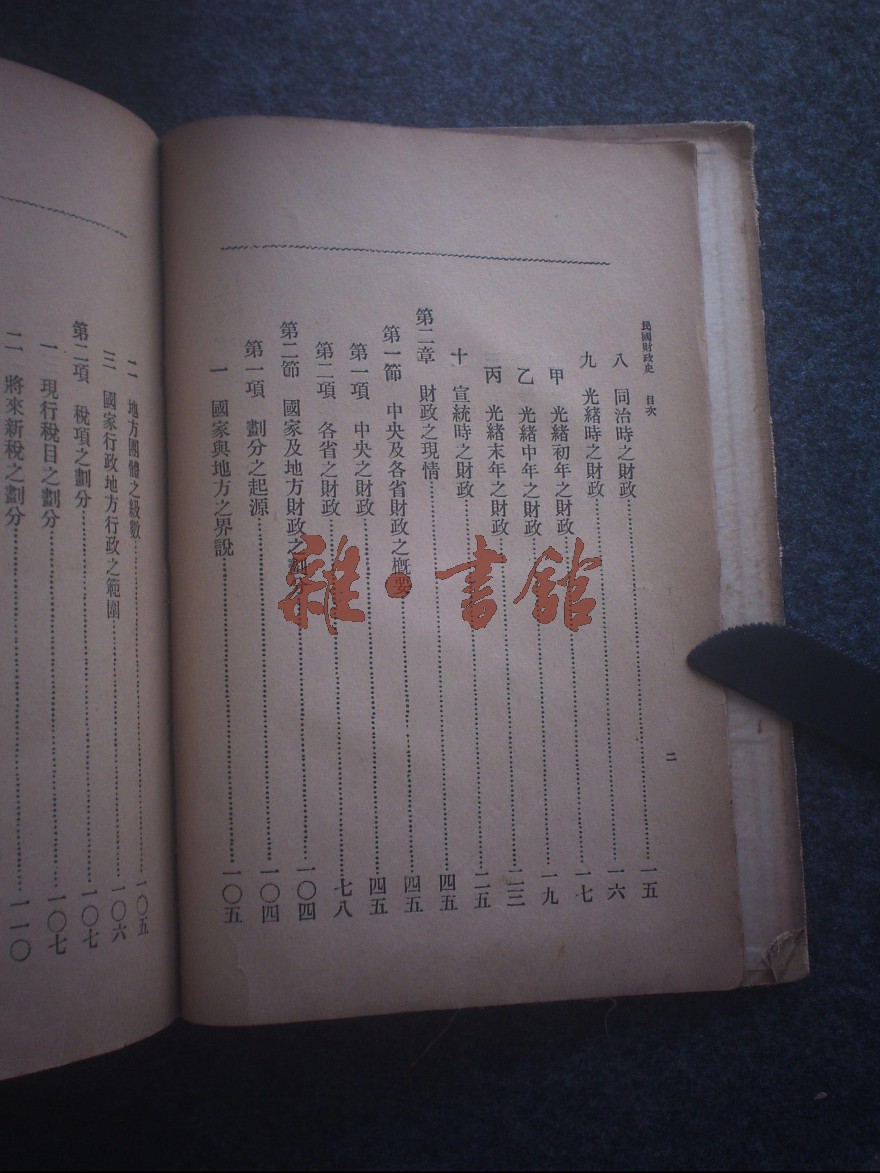 民國財政史 目次
二
八 同治時之財政……一五
九 光緒時之財政……一六
甲 光緒初年之財政……一七
乙 光緒中年之財政……一九
丙 光緒末年之財政……二三
十 宣統時之財政……二五
第二章 財政之現情……四五
第一節 中央及各省財政之概要……四五
第一項 中央之財政……四五
第二項 各省之財政……七八
第二節 國家及地方財政之劃分……一〇四
第一項 劃分之起源……一〇四
一 國家與地方之界說……一〇五
二 地方團體之級數……一〇五
三 國家行政地方行政之範圍……一〇六
第二項 稅項之劃分……一〇七
一 現行稅目之劃分……一〇七
二 將來新稅之劃分……一一〇
雜·書館